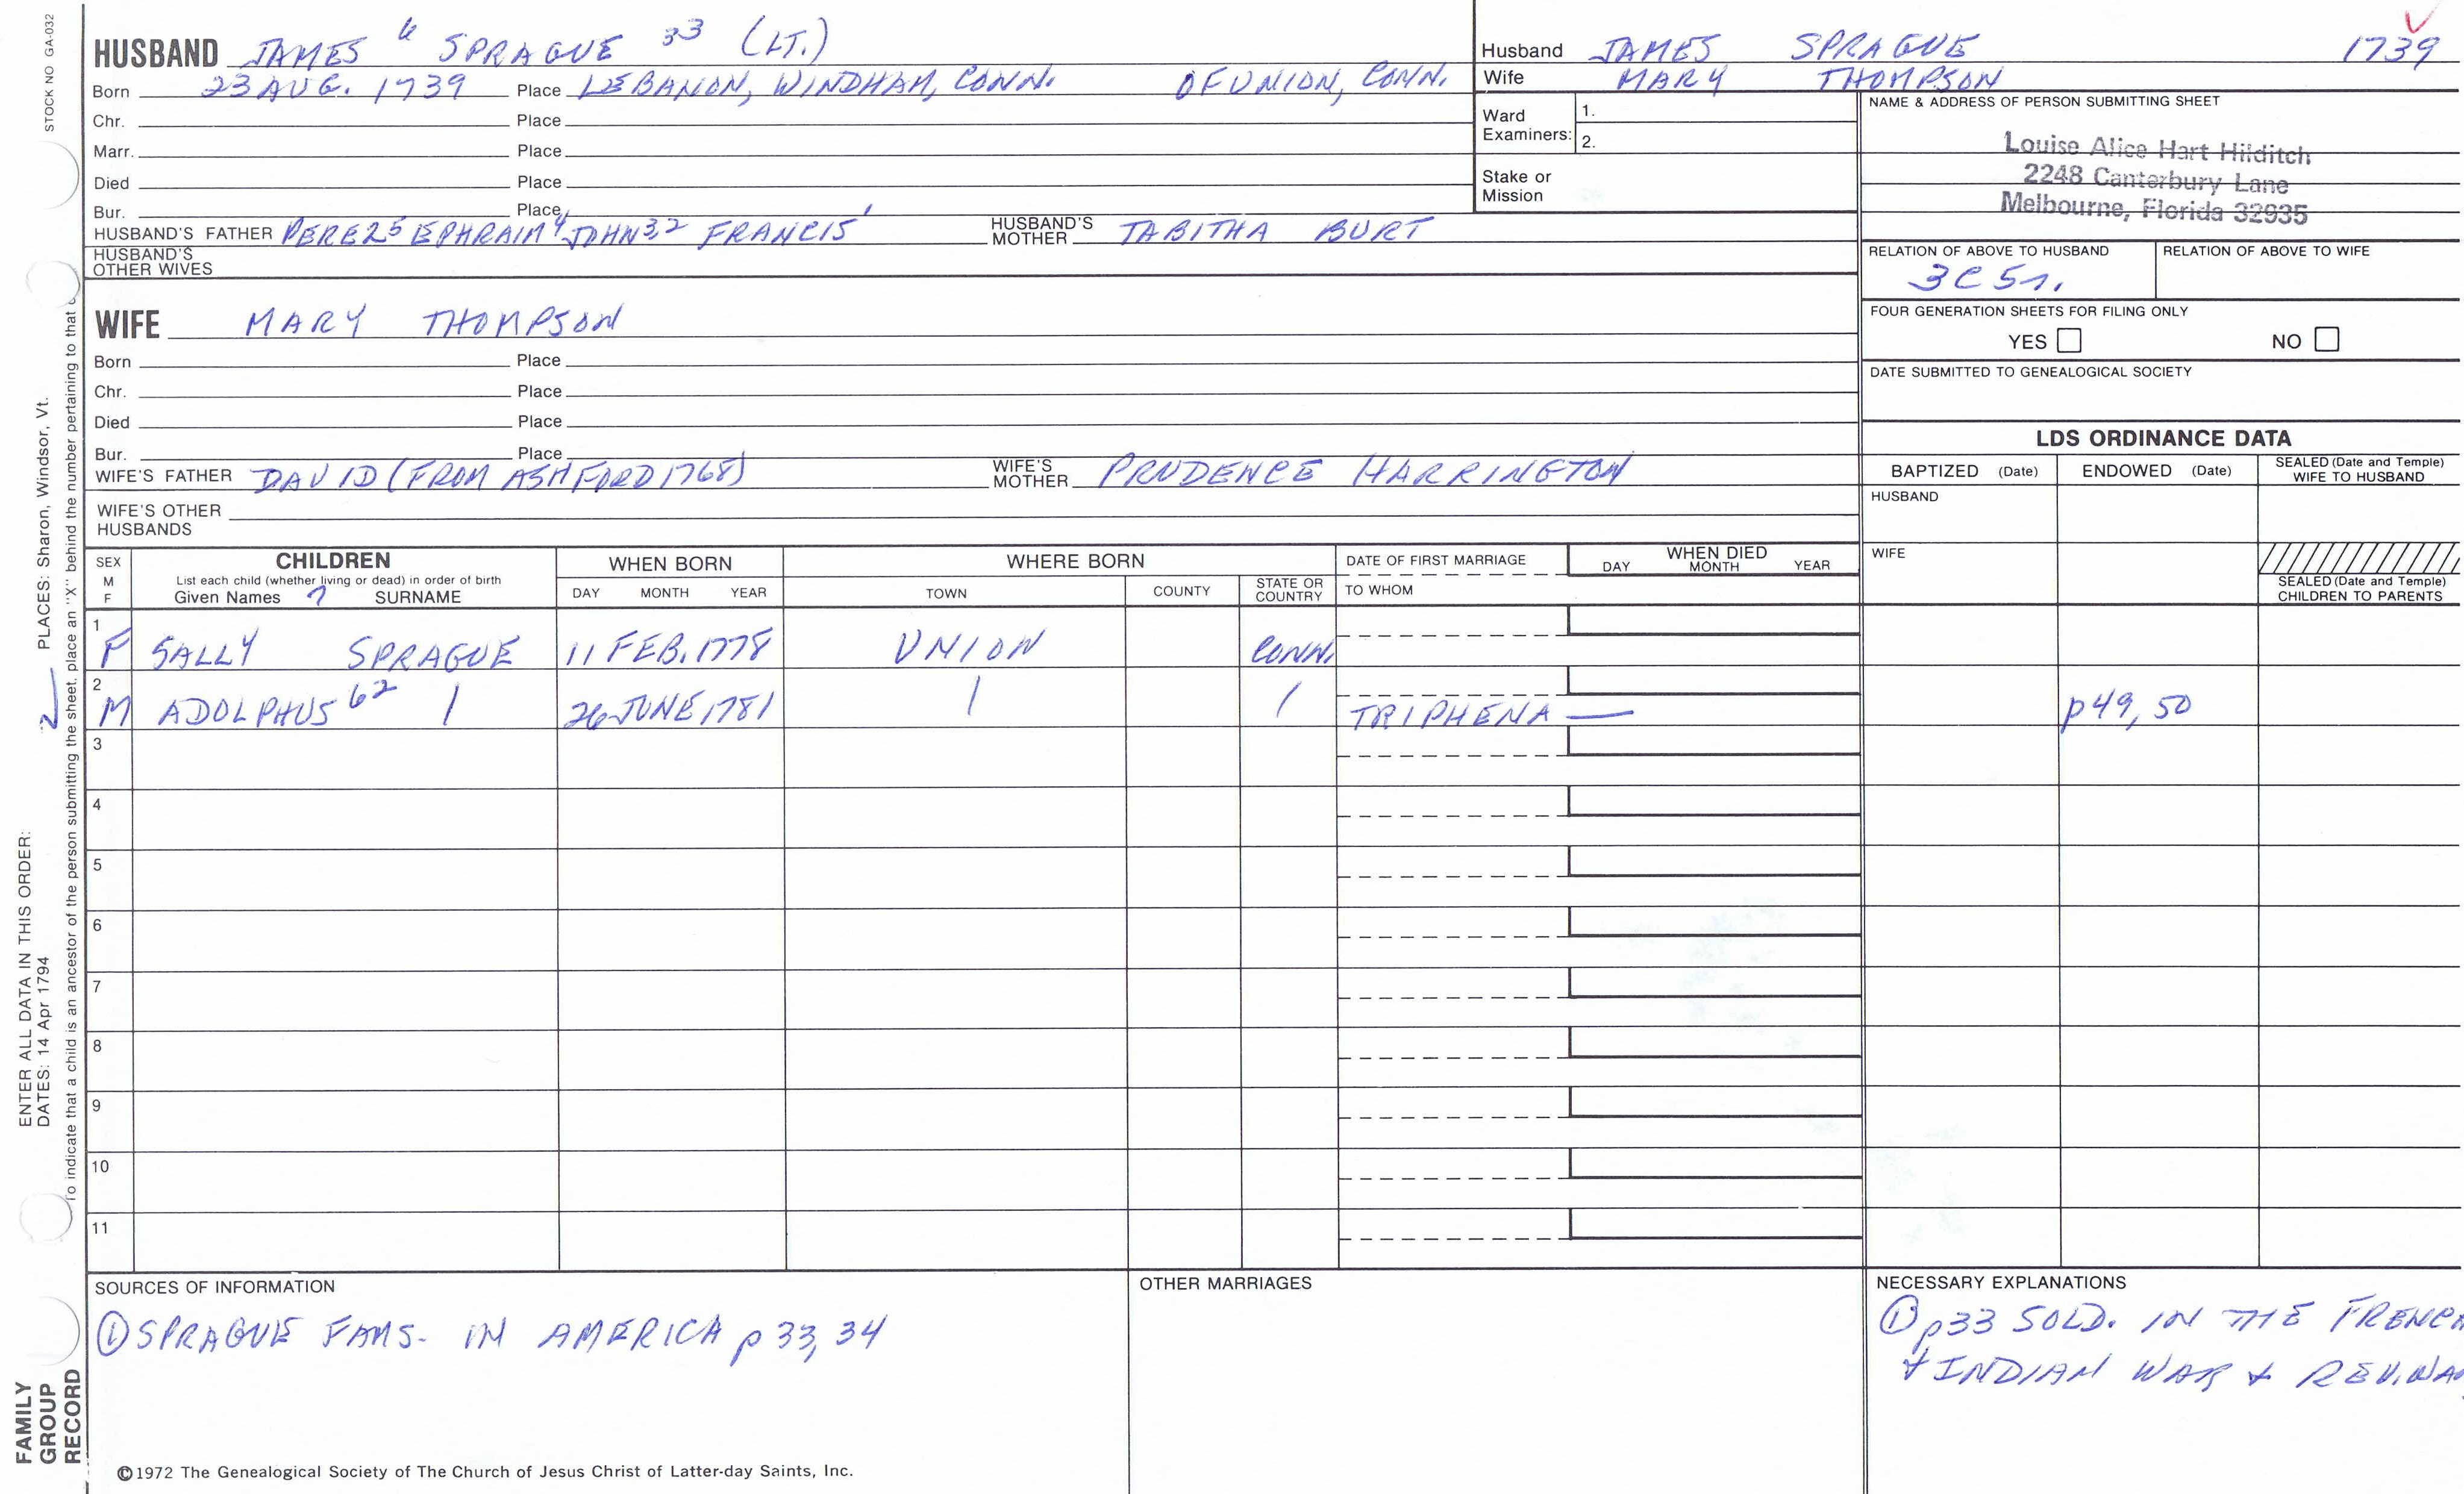 STOCK NO GA-032
HUSBAND JAMES 6 SPRAGUE 33 (LT.)
Born 23 AUG. 1739 Place LEBANON, WINDHAM, CONN. OF UNION, CONN.
Chr. Place
Marr. Place
Died Place
Bur. Place
HUSBAND'S FATHER PEREZ5 EPHRAIM4 JOHN32 FRANCIS1 HUSBAND'S MOTHER TABITHA BURT
HUSBAND'S OTHER WIVES
Husband JAMES SPRAGUE 1739
Wife MARY THOMPSON
Ward Examiners: 1.
2.
Stake or Mission
NAME & ADDRESS OF PERSON SUBMITTING SHEET
Louise Alice Hart Hilditch
2248 Canterbury Lane
Melbourne, Florida 32935
RELATION OF ABOVE TO HUSBAND RELATION OF ABOVE TO WIFE
3C5r.
FOUR GENERATION SHEETS FOR FILING ONLY
YES NO
DATE SUBMITTED TO GENEALOGICAL SOCIETY
WIFE MARY THOMPSON
Born Place
Chr. Place
Died Place
Bur. Place
WIFE'S FATHER DAVID (FROM ASHFORD 1768) WIFE'S MOTHER PRUDENCE HARRINGTON
WIFE'S OTHER HUSBANDS
LDS ORDINANCE DATA
BAPTIZED (Date) ENDOWED (Date) SEALED (Date and Temple) WIFE TO HUSBAND
HUSBAND
WIFE
SEALED (Date and Temple) CHILDREN TO PARENTS
SEX M F CHILDREN WHEN BORN WHERE BORN DATE OF FIRST MARRIAGE WHEN DIED
List each child (whether living or dead) in order of birth
Given Names 7 SURNAME DAY MONTH YEAR TOWN COUNTY STATE OR COUNTRY TO WHOM DAY MONTH YEAR
1 F SALLY SPRAGUE 11 FEB. 1778 UNION CONN.
2 M ADOLPHUS 62 | 26 JUNE 1781 | | TRIPHENA — p49, 50
3
4
5
6
7
8
9
10
11
SOURCES OF INFORMATION
① SPRAGUE FAMS. IN AMERICA p 33, 34
OTHER MARRIAGES
NECESSARY EXPLANATIONS
① p33 SOLD. IN THE FRENCH
+ INDIAN WAR + REV. WA
©1972 The Genealogical Society of The Church of Jesus Christ of Latter-day Saints, Inc.
FAMILY GROUP RECORD
ENTER ALL DATA IN THIS ORDER:
DATES: 14 Apr 1794 2 PLACES: Sharon, Windsor, Vt.
To indicate that a child is an ancestor of the person submitting the sheet, place an "X" behind the number pertaining to that